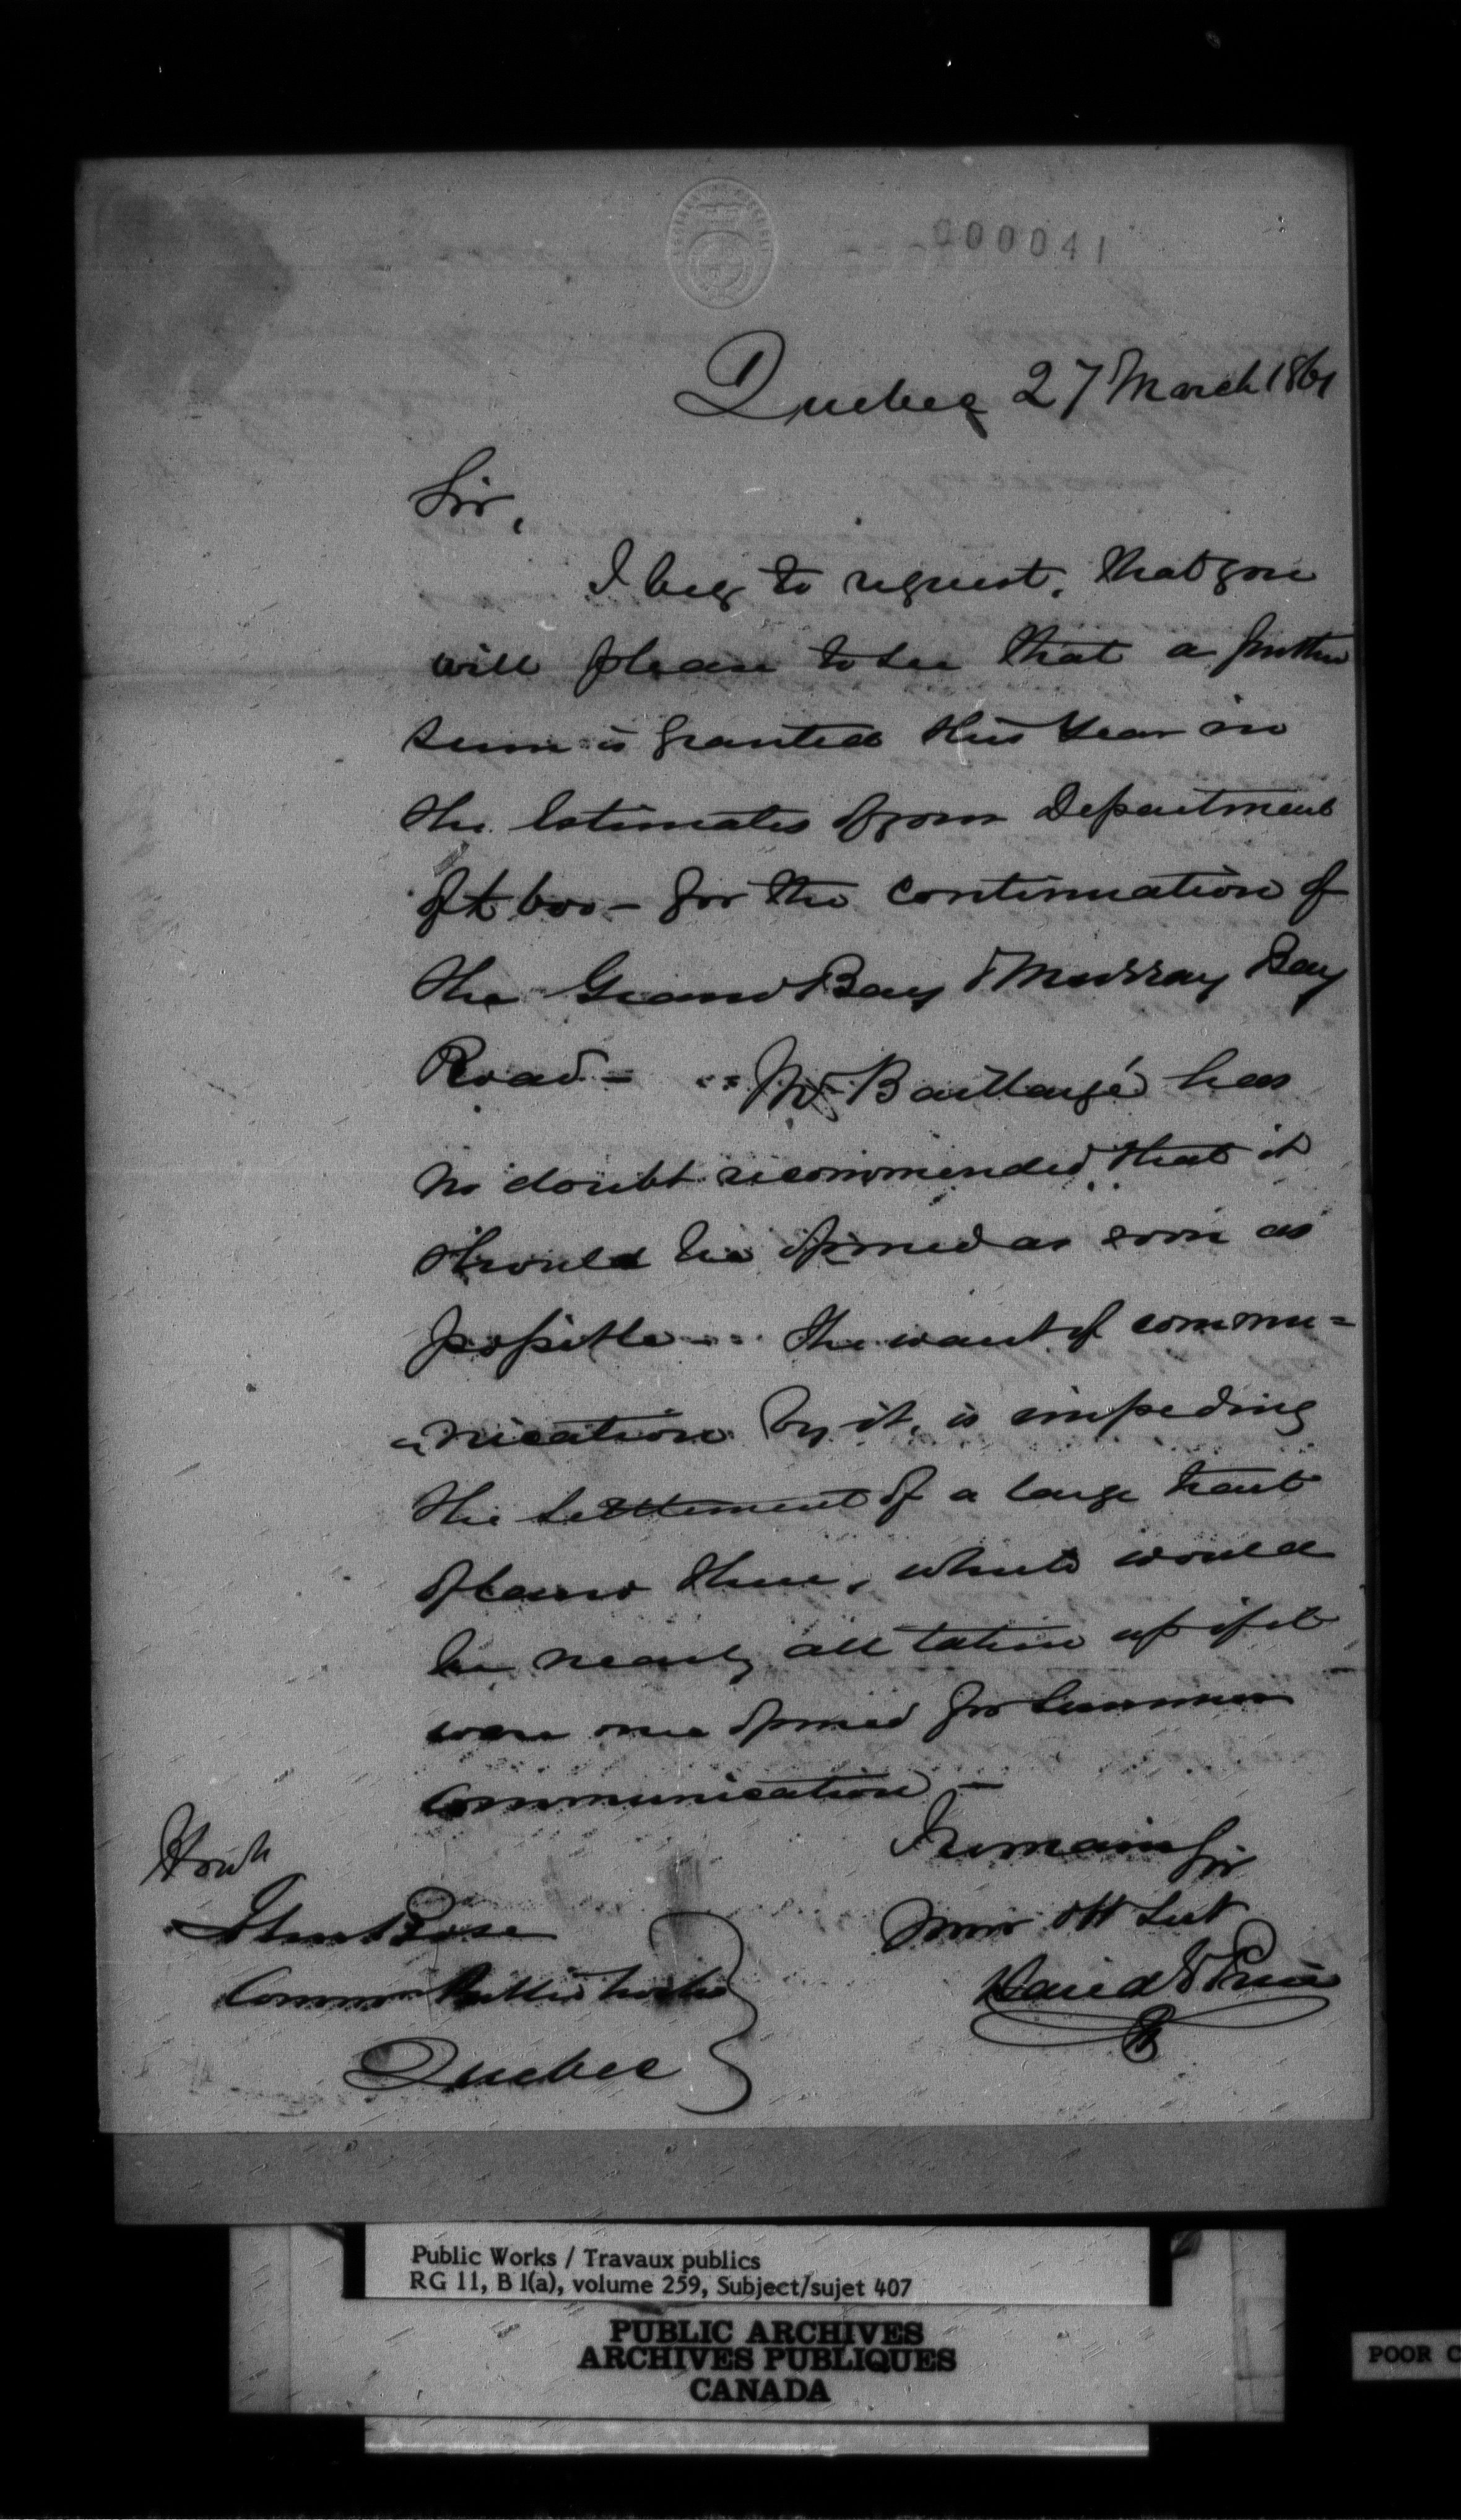 000041
Quebec 27 March 1861
Sir,
I beg to request, that you
will please to see that a further
sum is granted this Year in
the Estimates of your Department
of £600 – for the continuation of
the Grand Bay & Murray Bay
Road – Mr Baillairgé has
no doubt recommended that it
should be opened as soon as
possible – The want of commu=
=nication by it, is impeding
the settlement of a large tract
of land there, which would
be nearly all taken up if it
were once opened for Summer
communication –
I remain Sir
Your Ob Sert
David E Price
Honble
John Rose
Commr Public Works
Quebec
Public Works / Travaux publics
RG 11, B 1(a), volume 259, Subject/sujet 407
PUBLIC ARCHIVES
ARCHIVES PUBLIQUES
CANADA
POOR C